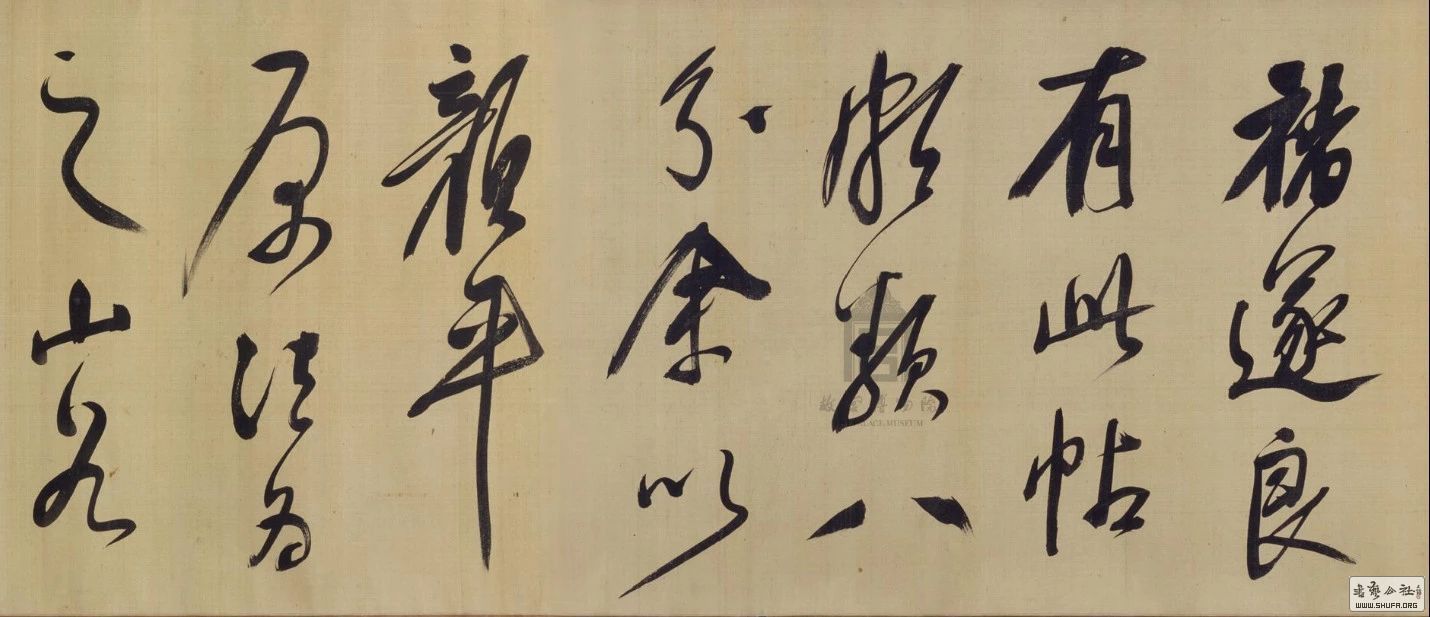 褚遂良
有此帖
頗類八
分余以
顏平
原法為
之山
故宮博物院
PALACE MUSEUM
書藝公社
WWW.SHUFA.ORG